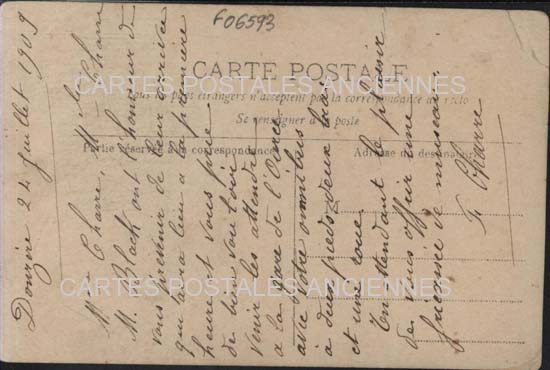 F06593
CARTE POSTALE
Tous les pays étrangers n'acceptent pas la correspondance au recto
Se renseigner à la poste
Partie réservée à la correspondance
Adresse du destinataire
CARTES POSTALES ANCIENNES
CARTES POSTALES ANCIENNES
Donzère 24 Juillet 1909
Mme Charre, Mr Charre
M. Black ont l'honneur de
vous prévenir de leur arrivée
qui aura lieu a la première
heure et vous prie
de bien vouloir
venir les attendre
a la gare de l'
avec votre omnibus
à deux pieds deux bras
et une roue
En attendant le plaisir
de vous offrir une
poignée de
F Charre